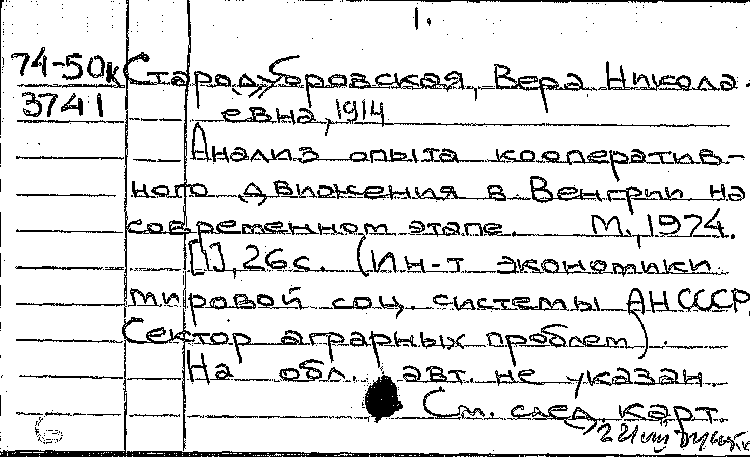 1.
74-50к Стародубровская, Вера Никола-
3741 евна, 1914
Анализ опыта кооператив-
ного движения в Венгрии на
современном этапе. М., 1974.
[1], 26с. (Ин-т экономики
мировой соц. системы АН СССР.
Сектор аграрных проблем).
На обл. авт. не указан.
См. след карт.